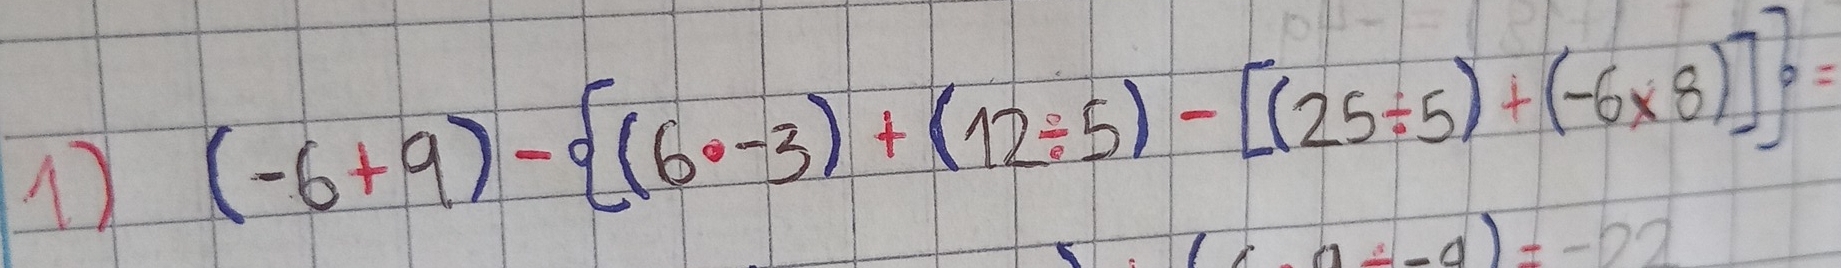 1) (-6+9)-{(6·-3)+(12÷5)-[(25÷5)+(-6x8)]}=
)=-22